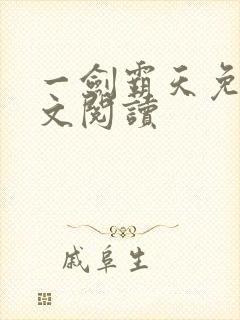 一劍霸天免
文閱讀
戚阜生